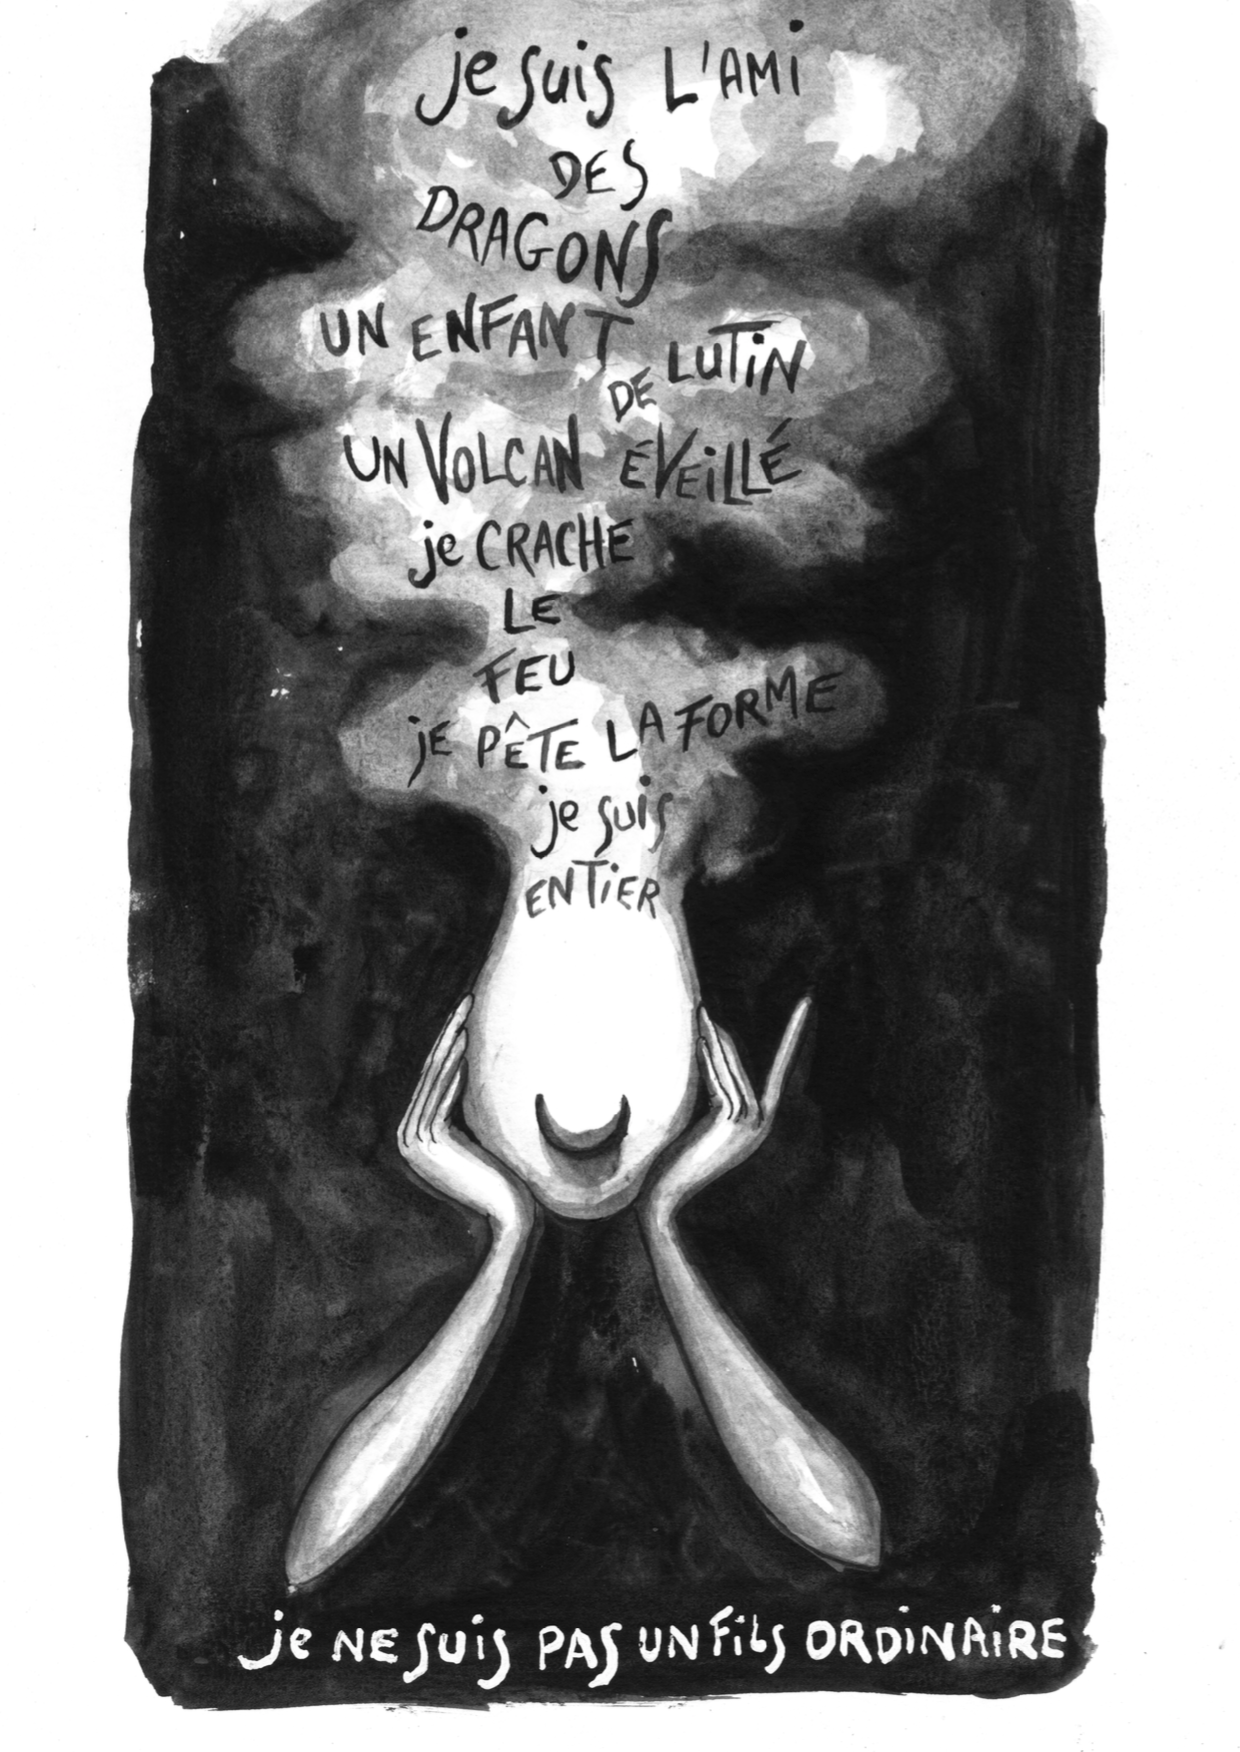 je suis L'AMi
DES
DRAGONS
UN ENFANT DE LUTiN
UN VOLCAN ÉVEiLLÉ
je CRACHE
LE
FEU
jE PÊTE LA FORME
je suis
ENTiER
je NE suis PAS UN FiLS ORDiNAiRE